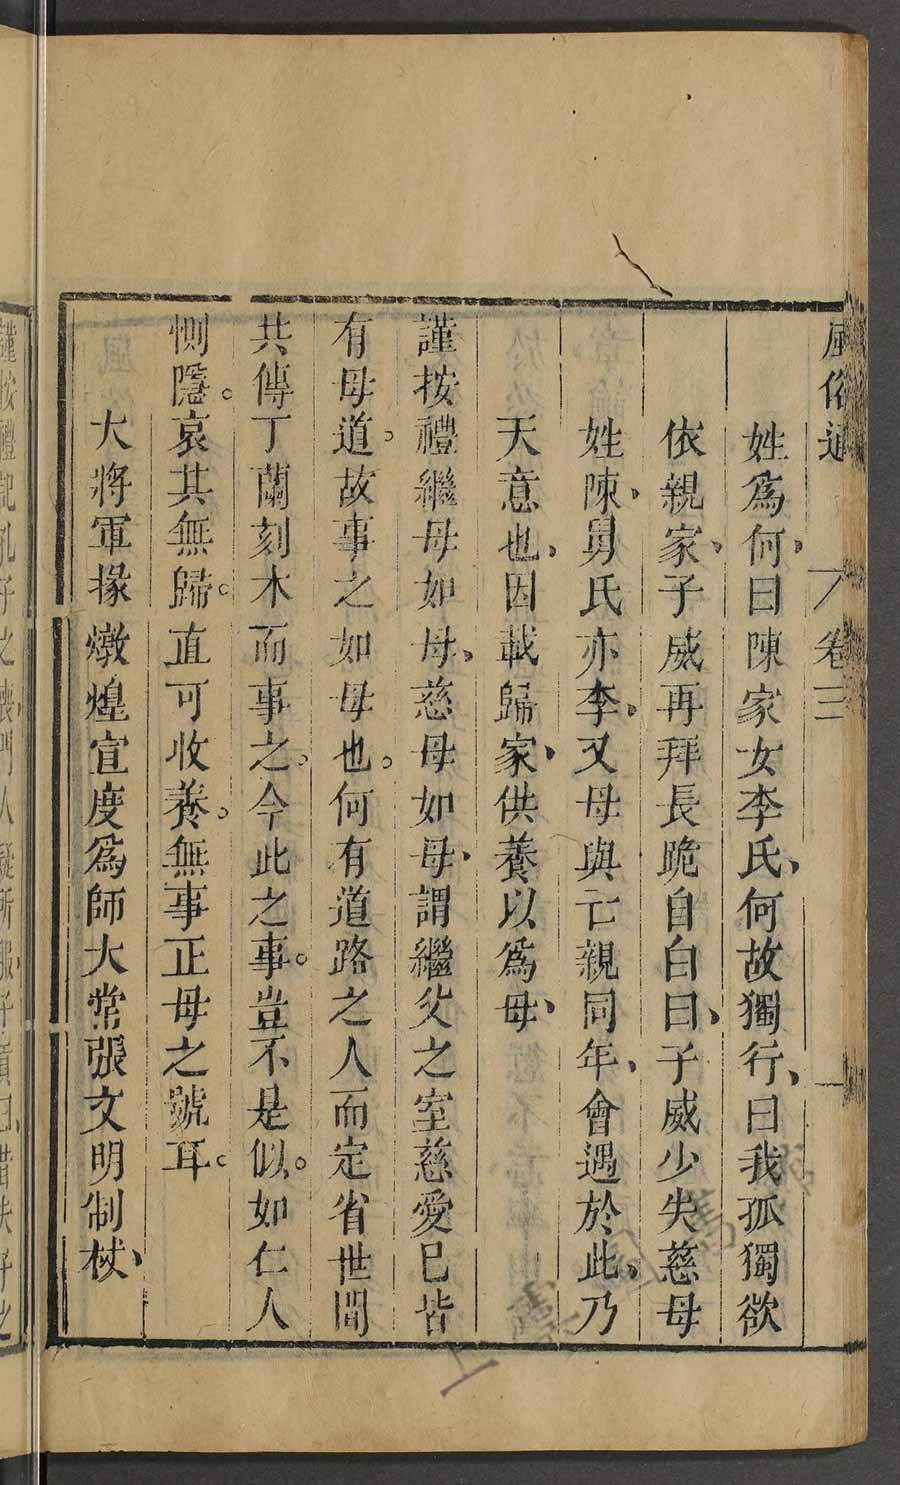 風俗通 卷三 一
姓爲何、曰陳家女李氏、何故獨行、曰我孤獨欲
依親家、子威再拜長跪自白曰、子威少失慈母
姓陳、舅氏亦李、又母與亡親同年、會遇於此、乃
天意也、因載歸家、供養以爲母、
謹按禮繼母如母、慈母如母、謂繼父之室慈愛已皆
有母道。故事之如母也。何有道路之人而定省世間
共傳丁蘭刻木而事之。今此之事。豈不是似。如仁人
惻隱。哀其無歸。直可收養。無事正母之號耳。
大將軍掾燉煌宣度爲師大常張文明制杖、